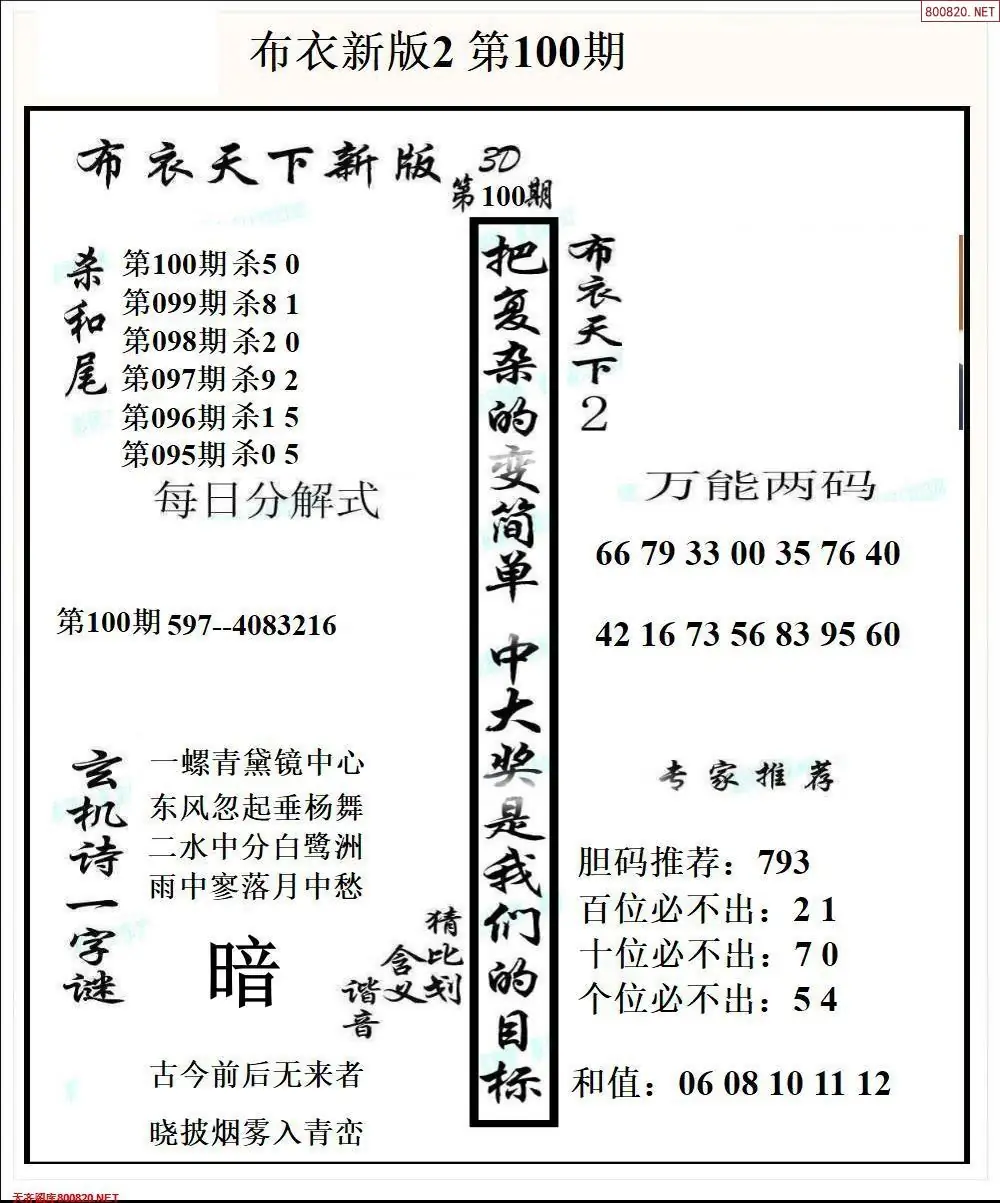 800820.NET
布衣新版2 第100期
布衣天下新版 3D
第100期
杀和尾
第100期杀5 0
第099期杀8 1
第098期杀2 0
第097期杀9 2
第096期杀1 5
第095期杀0 5
每日分解式
第100期597--4083216
玄机诗一字谜
一螺青黛镜中心
东风忽起垂杨舞
二水中分白鹭洲
雨中寥落月中愁
暗
猜比划
含义
谐音
古今前后无来者
晓披烟雾入青峦
把复杂的变简单 中大奖是我们的目标
布衣天下2
万能两码
66 79 33 00 35 76 40
42 16 73 56 83 95 60
专家推荐
胆码推荐：793
百位必不出：2 1
十位必不出：7 0
个位必不出：5 4
和值：06 08 10 11 12
天齐图库800820.NET